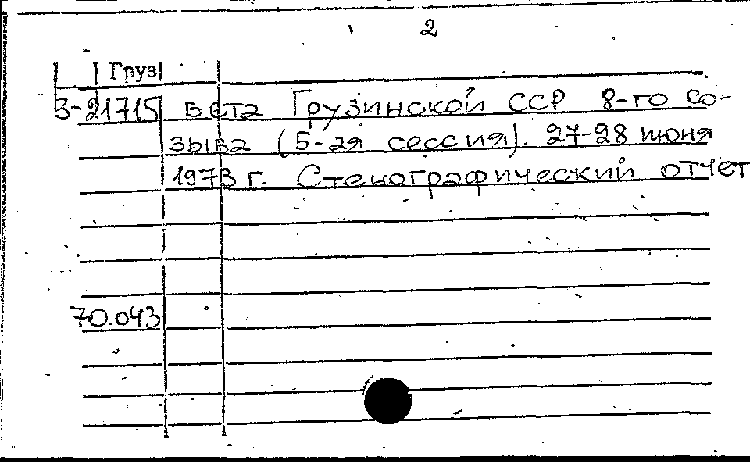 2
Груз
3-21715 вета Грузинской ССР 8-го со-
зыва (5-ая сессия). 27-28 июня
1973 г. Стенографический отчет
70.043